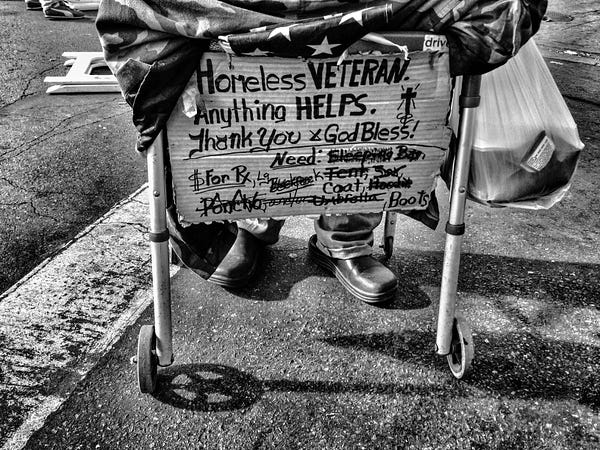 driv
Homeless VETERAN.
Anything HELPS.
Thank You & God Bless!
Need: Sleeping Bag,
$ For Rx, Lg Backpack Tent, Sox,
Coat,
Poncho, and/or Umbrella, Boots